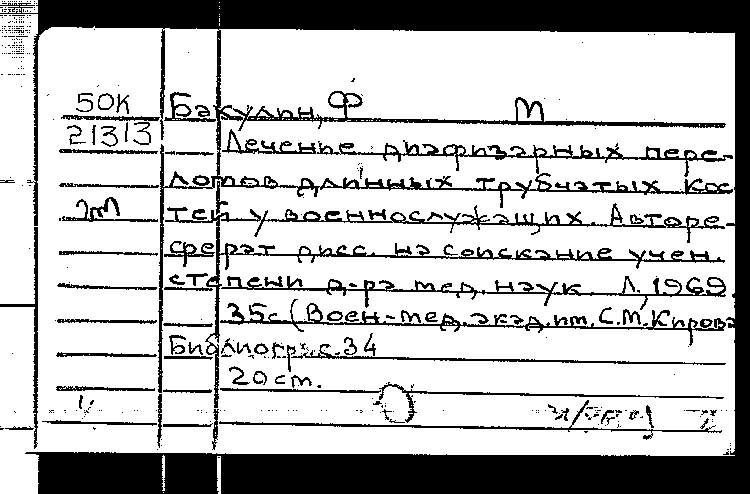 50К Бакулин, Ф М
21313 Лечение диафизарных пере-
ломов длинных трубчатых кос
тей у военнослужащих. Авторе-
ферат дисс. на соискание учен.
степени д-ра мед. наук. Л, 1969.
35с (Воен-мед. акад. им. С.М. Кирова
Библиогр: с. 34
20 cm.